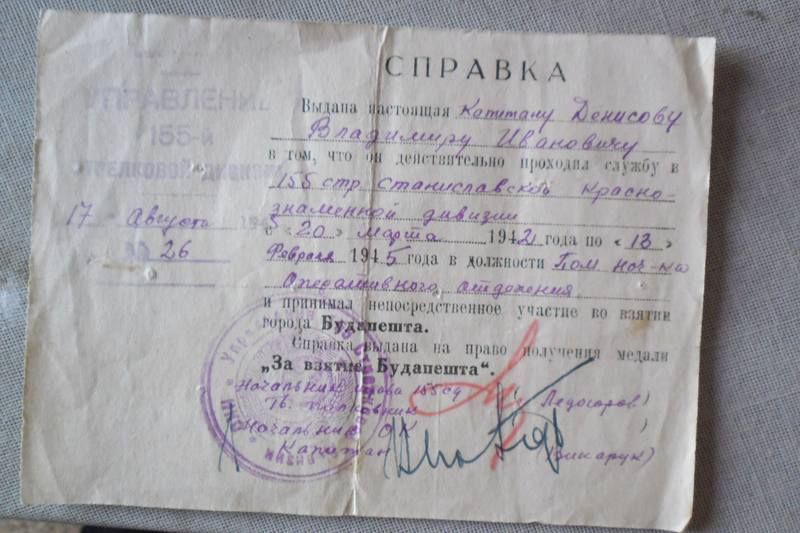 УПРАВЛЕНИЕ
155-й
17 Августа 1945
№ 26
СПРАВКА
Выдана настоящая Капитану Денисову
Владимиру Ивановичу
в том, что он действительно проходил службу в
155 стр. Станиславской Красно-
знаменной дивизии
с «20» Марта 1942 года по «13»
Февраля 1945 года в должности Пом нач-ка
Оперативного отделения
и принимал непосредственное участие во взятии
города Будапешта.
Справка выдана на право получения медали
„За взятие Будапешта“.
Начальник штаба 155 сд
Начальник
Капитан